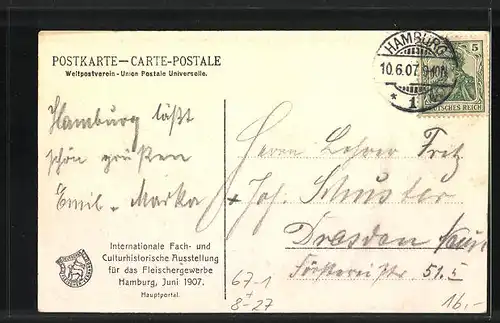 POSTKARTE — CARTE-POSTALE
Weltpostverein - Union Postale Universelle.
HAMBURG
10.6.07. 9-10N
* 1
5
DEUTSCHES REICH
Hamburg läßt
schön grüßen
Emil - Marka
Herrn Lehrer Fretz
+ Joh. Schuster
Dresden
Försterei str 51.5
Internationale Fach- und
Culturhistorische Ausstellung
für das Fleischergewerbe
Hamburg, Juni 1907.
Hauptportal.
67-1
8-27
16,-